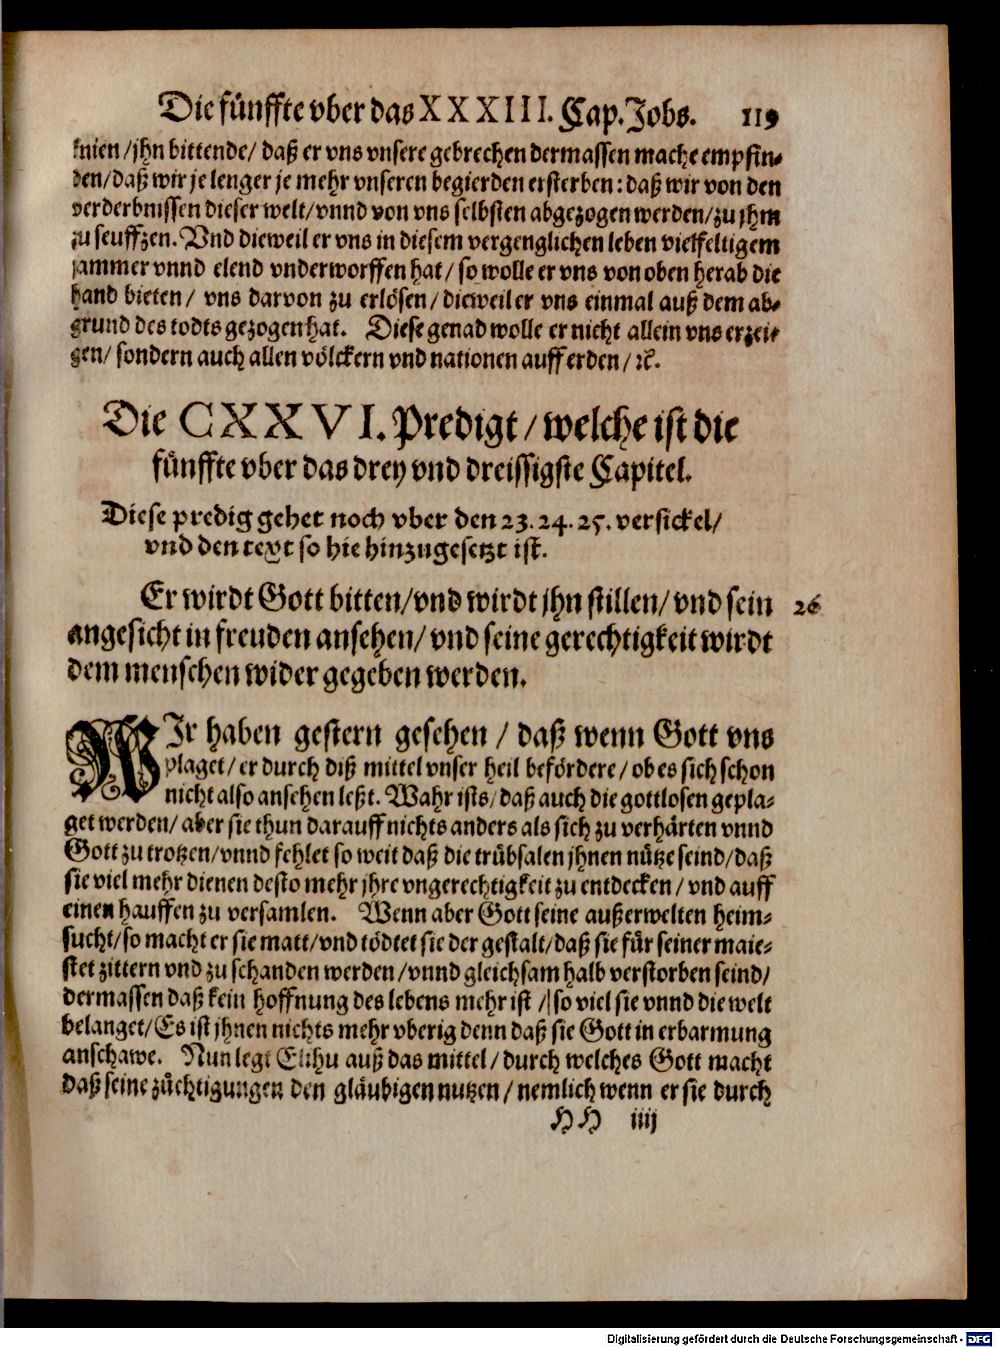 Die fünffte vber das XXXIII. Cap. Jobs. 119
knien/jhn bittende/ daß er vns vnsere gebrechen dermassen mache empfin-
den/daß wir je lenger je mehr vnseren begierden ersterben: daß wir von den
verderbnissen dieser welt/vnnd von vns selbsten abgezogen werden/zu jhm
zu seuffzen. Vnd dieweil er vns in diesem vergenglichen leben vielfeltigem
jammer vnnd elend vnderworffen hat/ so wolle er vns von oben herab die
hand bieten/ vns darvon zu erlösen/ dieweil er vns einmal auß dem ab-
grund des todts gezogen hat. Diese genad wolle er nicht allein vns erzei-
gen/ sondern auch allen völckern vnd nationen auff erden/ ꝛc.
Die CXXVI. Predigt/ welche ist die
fünffte vber das drey vnd dreissigste Capitel.
Diese predig gehet noch vber den 23. 24. 25. versickel/
vnd den text so hie hinzugesetzt ist.
Er wirdt Gott bitten/vnd wirdt jhn stillen/ vnd sein 26
angesicht in freuden ansehen/ vnd seine gerechtigkeit wirdt
dem menschen wider gegeben werden.
WIr haben gestern gesehen / daß wenn Gott vns
plaget/ er durch diß mittel vnser heil befördere/ ob es sich schon
nicht also ansehen leßt. Wahr ists/ daß auch die gottlosen gepla-
get werden/ aber sie thun darauff nichts anders als sich zu verhärten vnnd
Gott zu trotzen/vnnd fehlet so weit daß die trübsalen jhnen nütze seind/daß
sie viel mehr dienen desto mehr jhre vngerechtigkeit zu entdecken/ vnd auff
einen hauffen zu versamlen. Wenn aber Gott seine außerwelten heim-
sucht/so macht er sie matt/vnd tödtet sie der gestalt/daß sie für seiner maie-
stet zittern vnd zu schanden werden/vnnd gleichsam halb verstorben seind/
dermassen daß kein hoffnung des lebens mehr ist / so viel sie vnnd die welt
belanget/Es ist jhnen nichts mehr vberig denn daß sie Gott in erbarmung
anschawe. Nun legt Elihu auß das mittel/ durch welches Gott macht
daß seine züchtigungen den gläubigen nutzen/ nemlich wenn er sie durch
HH iiij
Digitalisierung gefördert durch die Deutsche Forschungsgemeinschaft - DFG